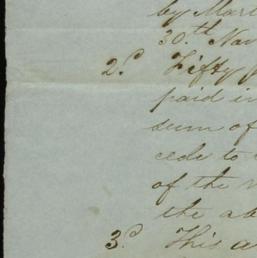 by Mar
30.th Nov
2.d Fifty
paid in
sum of
cede to
of the
the ab
3.d This a